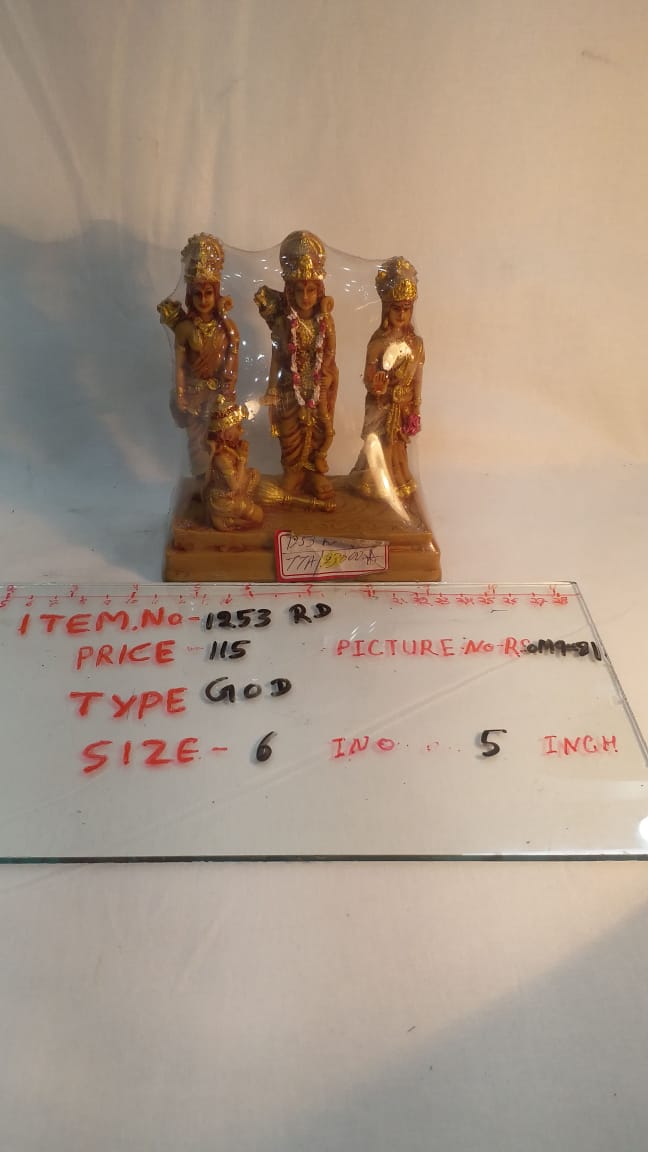 1253
TTA
ITEM.No-1253 RD
PRICE - 115 PICTURE No-RSOM9-81
TYPE GOD
SIZE - 6 INO 5 INCH